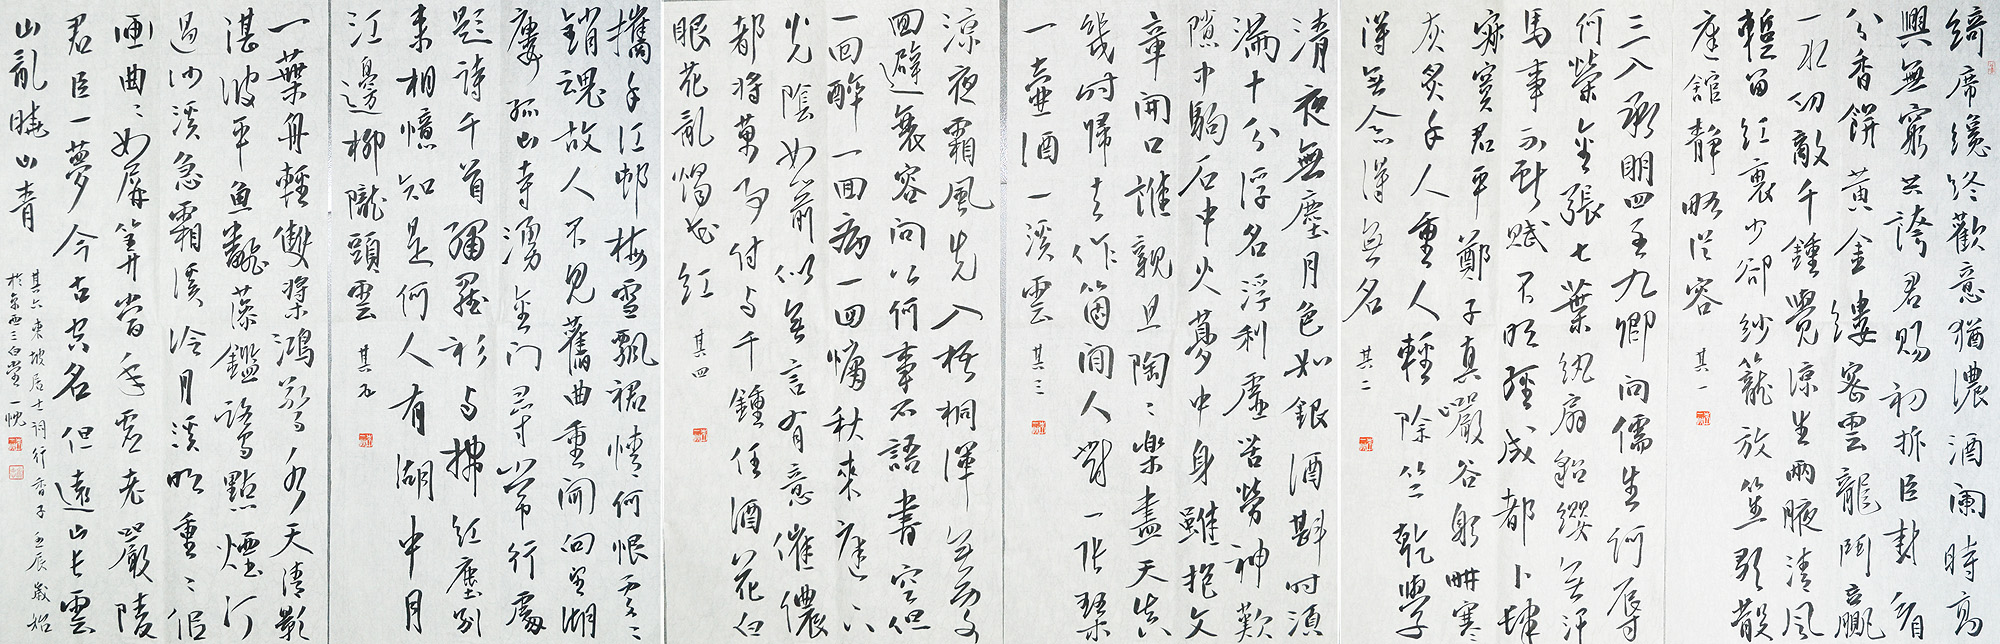 綺席纔終歡意猶濃酒闌時高
興無窮共誇君賜初拆臣封看
分香餅黃金縷密雲龍鬥贏
一水功敵千鍾覺涼生兩腋清風
暫留紅裏少卻紗籠放笙歌散
庭館靜略從容 其一
三入承明四至九卿問儒生何辱
何榮金張七葉紈扇貂纓無汗
馬事不獻賦不明經成都卜肆
寂寞君平鄭子真巖谷躬畊寒
灰炙手人重人輕除竺乾學
得無念得無名 其二
清夜無塵月色如銀酒斟時須
滿十分浮名浮利虛苦勞神歎
隙中駒石中火夢中身雖抱文
章開口誰親且陶〻樂盡天真
幾時歸去作箇閒人對一張琴
一壺酒一溪雲 其三
涼夜霜風先入梧桐渾無處
回避衰容問公何事不語書空但
一回醉一回病一回慵秋來庭下
光陰如箭似無言有意催儂
都將萬事付與千鍾任酒花白
眼花亂燭花紅 其四
攜手江邨梅雪飄裙情何恨處〻
銷魂故人不見舊曲重聞向望湖
樓孤山寺湧金門尋常行處
題詩千首繡羅衫與拂紅塵別
來相憶知是何人有湖中月
江邊柳隴頭雲 其五
一葉舟輕雙槳鴻驚水天清影
湛波平魚翻藻鑑鷺點煙汀
過沙溪急霜溪冷月溪明重〻似
画曲〻如屏算當年虛老嚴陵
君臣一夢今古空名但遠山長雲
山亂曉山青
其六東坡居士詞行香子壬辰歲始
於京西三白堂一忱